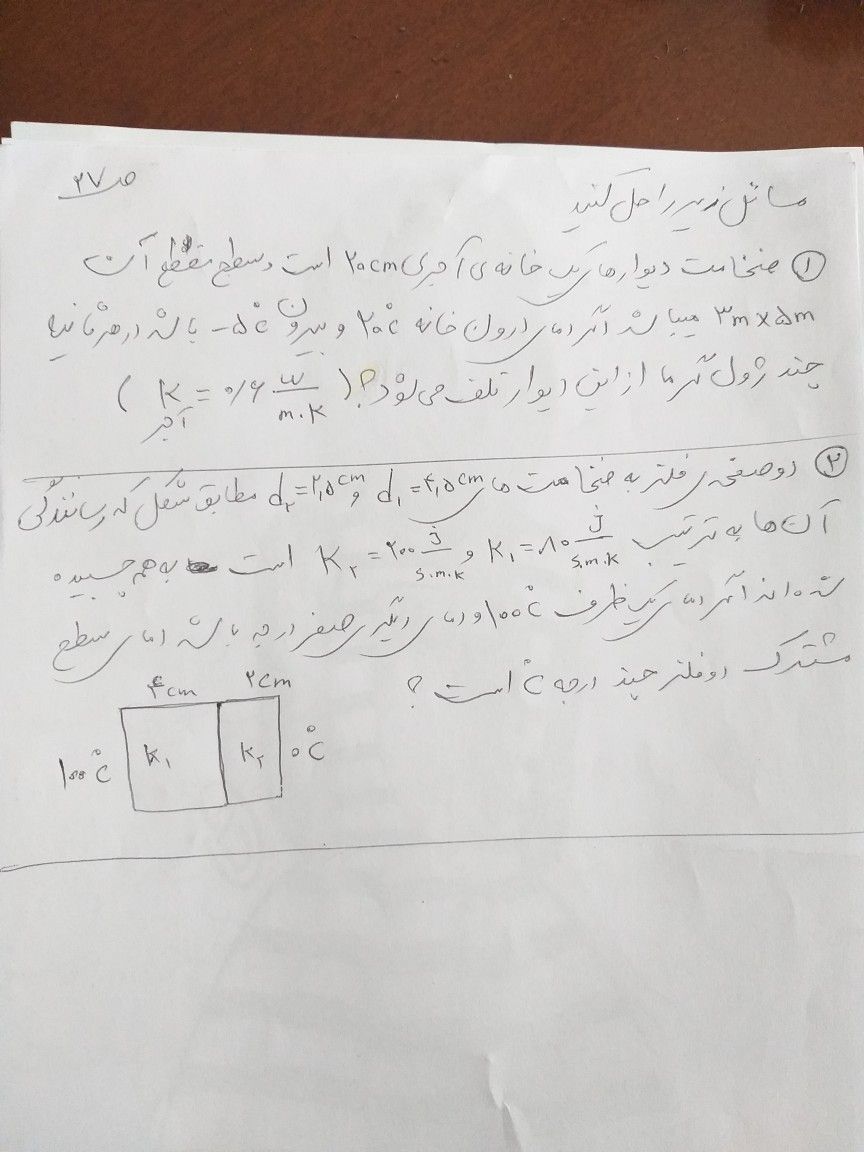 ص ۲۷
مسائل زیر را حل کنید
① ضخامت دیوارهای یک خانه ی آجری ۲۰cm است و سطح مقطع آن
۳m×۵m میباشد اگر دمای درون خانه ۲۰°C و بیرون -۵°C باشد در هر ثانیه
چند ژول گرما از این دیوار تلف می شود؟ (K = ۰/۶ W/m.K)
آجر
② دو صفحه ی فلز به ضخامت های d₁=۴,۵cm و d₂=۲,۵cm مطابق شکل که رسانندگی
آن ها به ترتیب K₁=۸۰ J/s.m.K و K₂=۲۰۰ J/s.m.K است به هم چسبیده
شده اند اگر دمای یک طرف ۱۰۰°C و دمای دیگری صفر درجه باشد دمای سطح
مشترک دو فلز چند درجه °C است؟
۴cm ۲cm
۱۰۰°C K₁ K₂ ۰°C